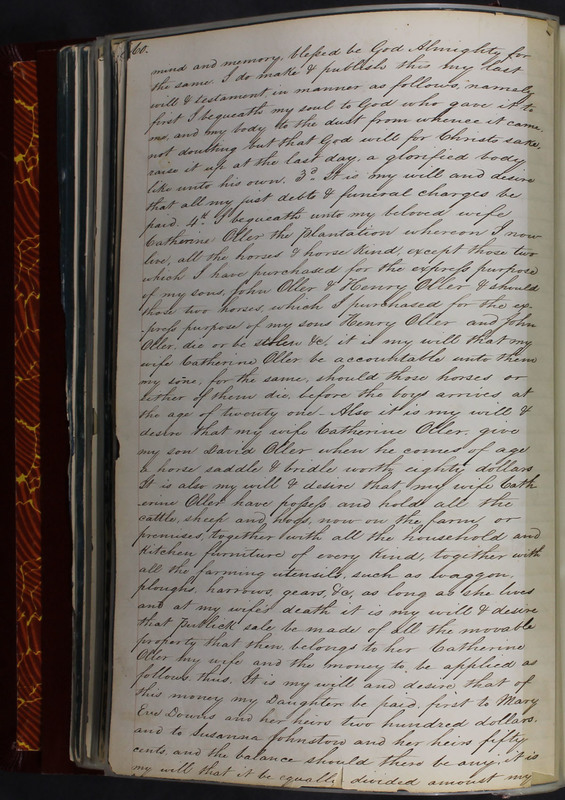 60.
mind and memory, blessed be God Almighty for
the same. I do make & publish this my last
will & testament in manner as follows, namely
first I bequeath my soul to God who gave it to
me, and my body to the dust from whence it came,
not doubting but that God will for Christs sake,
raise it up at the last day, a glorified body
like unto his own. 3d It is my will and desire
that all my just debts & funeral charges be
paid. 4th I bequeath unto my beloved wife
Catherine Oller the plantation whereon I now
live, all the horses & horse kind, except those two
which I have purchased for the express purpose
of my sons, John Oller & Henry Oller & should
those two horses, which I purchased for the ex-
-press purpose of my sons Henry Oller and John
Oller, die or be stolen &c, it is my will that my
wife Catherine Oller be accountable unto them
my sons, for the same, should those horses or
either of them die, before the boys arrives at
the age of twenty one. Also it is my will &
desire that my wife Catherine Oller, give
my son David Oller when he comes of age
a horse saddle & bridle worth eighty dollars
It is also my will & desire that my wife Cath
-erine Oller have possess and hold all the
cattle, sheep and hogs, now on the farm or
premises, together with all the household and
kitchen furniture of every kind, together with
all the farming utensils, such as waggon,
ploughs, harrows, gears, &c, as long as she lives
and at my wife's death it is my will & desire
that publick sale be made of all the movable
property that then belongs to her Catherine
Oller my wife and the money to be applied as
follows thus. It is my will and desire, that of
this money my Daughter be paid, first to Mary
Eve Downs and her heirs two hundred dollars,
and to Susanna Johnstown and her heirs fifty
cents, and the balance should there be any, it is
my will that it be equally divided amonst my